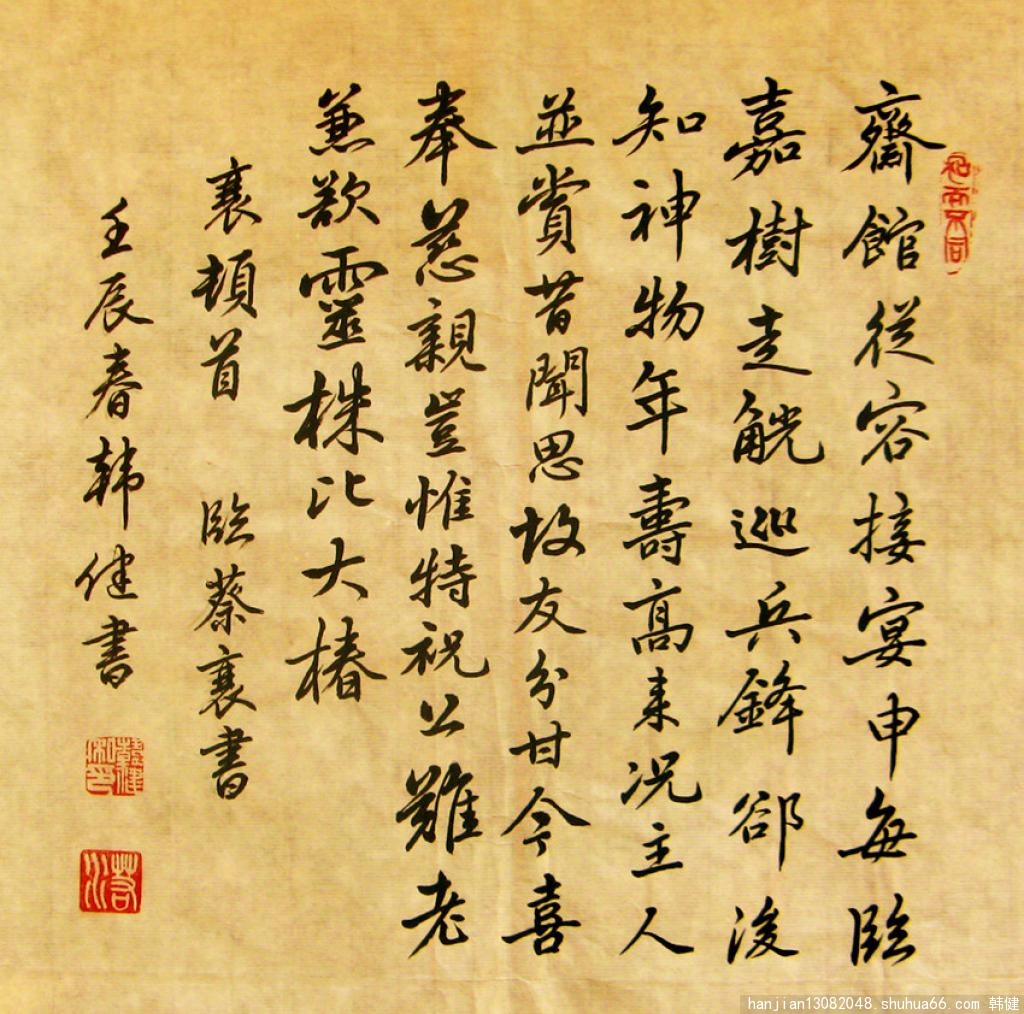 齋館從容接宴申每臨
嘉樹走觥巡兵鋒郤後
知神物年壽高來况主人
並賞昔聞思故友分甘今喜
奉慈親豈惟特祝公難老
兼欲靈株比大椿
襄頓首 臨蔡襄書
壬辰春韩健書
和而不同
hanjian13082048.shuhua66.com 韩健